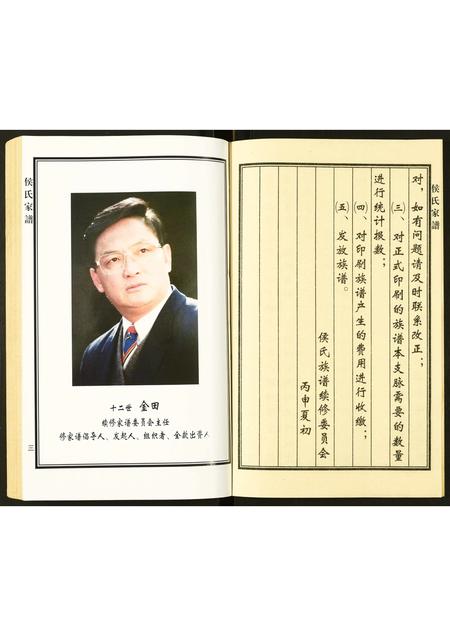 侯氏家谱
对，如有问题请及时联系改正；
㈢、对正式印刷的族谱本支脉需要的数量
进行统计报数；
㈣、对印刷族谱产生的费用进行收缴；
㈤、发放族谱。
侯氏族谱续修委员会
丙申夏初
侯氏家谱
十二世 金田
续修家谱委员会主任
修家谱倡导人、发起人、组织者、全款出资人
三